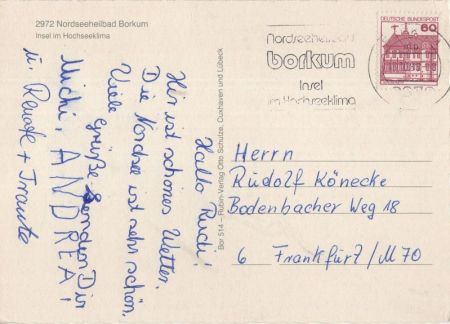 2972 Nordseeheilbad Borkum
Insel im Hochseeklima
Hallo Rudi!
Hier ist schönes Wetter.
Die Nordsee ist sehr schön.
Viele Grüße senden Dir
Michi, ANDREA!
u. Renate + Traute
Bor 514 – Rubin-Verlag Otto Schulze, Cuxhaven und Lübeck
Nordseeheilbad
borkum
Insel
im Hochseeklima
DEUTSCHE BUNDESPOST
60
Herrn
Rudolf Könecke
Bodenbacher Weg 18
6 Frankfurt/M 70